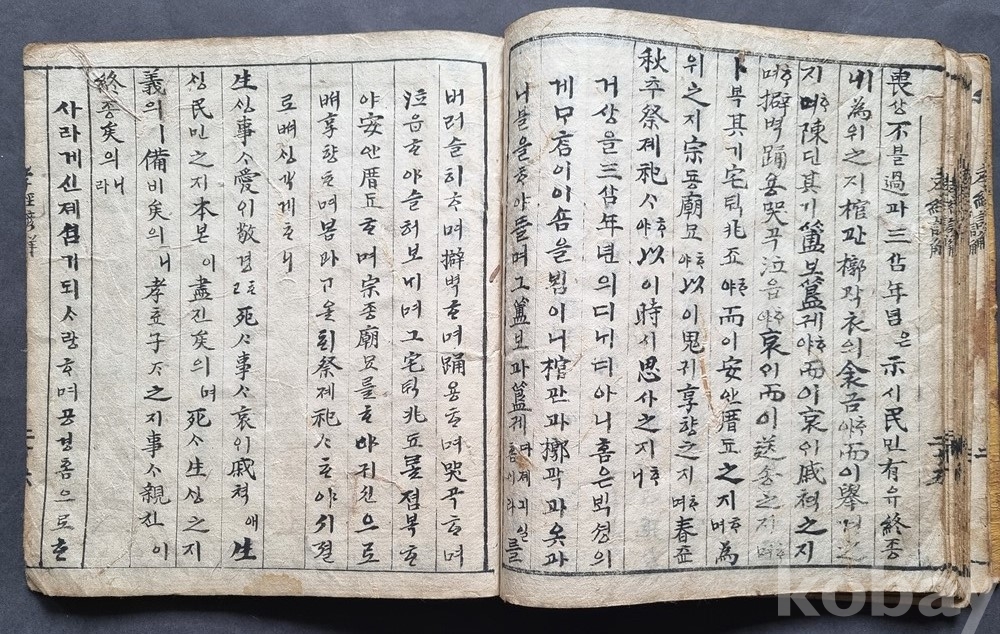 喪상不블過과三삼年년은示시民민有유終죵
為위之지棺관槨곽衣의衾금ᄒᆞ야而이舉거之
지며ᄒᆞ陳딘其기簠보簋궤ᄒᆞ야而이哀ᄋᆡ戚쳑之지
ᄒᆞ며擗벽踊용哭곡泣읍ᄒᆞ야哀ᄋᆡ而이送송之지ᄒᆞ며
卜복其기宅턱兆죠ᄒᆞ야而이安안厝조之지ᄒᆞ며為
위之지宗종廟묘ᄒᆞ야以이鬼귀享향之지ᄒᆞ며春츈
秋추祭졔祀ᄉᆞᄒᆞ야以이時시思사之지ᄒᆞ니
거상을三삼年년의디내디아니홈은ᄇᆡᆨ셩의
게ᄆᆞᄎᆞᆷ이이숌을뵘이니棺관과槨곽과옷과
니블을ᄒᆞ야들며그簠보과簋궤
버러슬허ᄒᆞ며擗벽ᄒᆞ며踊용ᄒᆞ며哭곡ᄒᆞ며
泣읍ᄒᆞ야슬허보내며그宅턱兆됴를졈복ᄒᆞ
야安안厝조ᄒᆞ며宗종廟묘를ᄒᆞ야귀신으로
ᄡᅥ享향ᄒᆞ며봄과ᄀᆞ을희祭졔祀ᄉᆞᄒᆞ야시졀
로ᄡᅥᄉᆡᆼ각게ᄒᆞ니
生ᄉᆡᆼ事ᄉᆞ愛ᄋᆡ敬경ᄒᆞ고死ᄉᆞ事ᄉᆞ哀ᄋᆡ戚쳑애生
ᄉᆡᆼ民민之지本본이盡진矣의며死ᄉᆞ生ᄉᆡᆼ之지
義의ㅣ備비矣의니孝효子ᄌᆞ之지事ᄉᆞ親친이
終죵矣의니라
사라게신제셤기되ᄉᆞ랑ᄒᆞ며공경홈으로ᄒᆞ
kobay